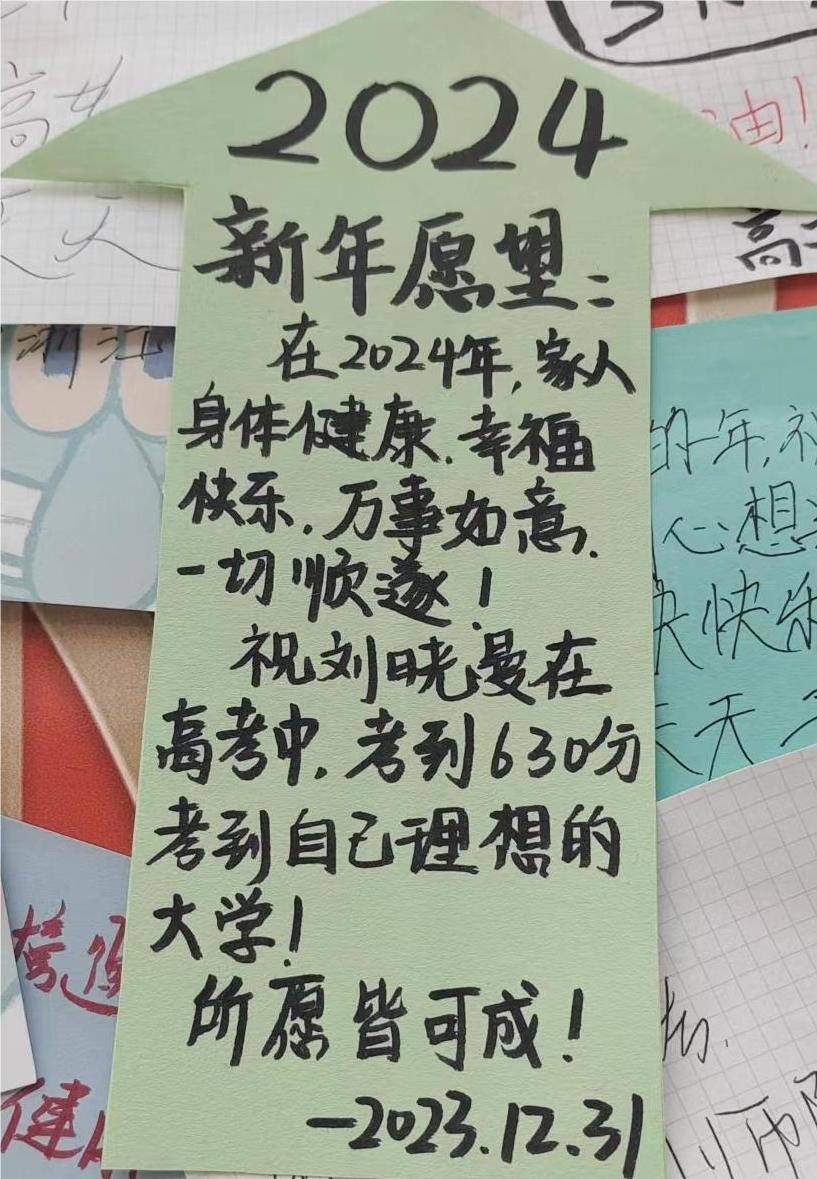 2024
新年愿望:
在2024年,家人
身体健康.幸福
快乐.万事如意.
一切顺遂!
祝刘晓曼在
高考中,考到630分
考到自己理想的
大学!
所愿皆可成!
—2023.12.31
天
浙江
油!
的一年,祝
心想
快快乐
天天
健